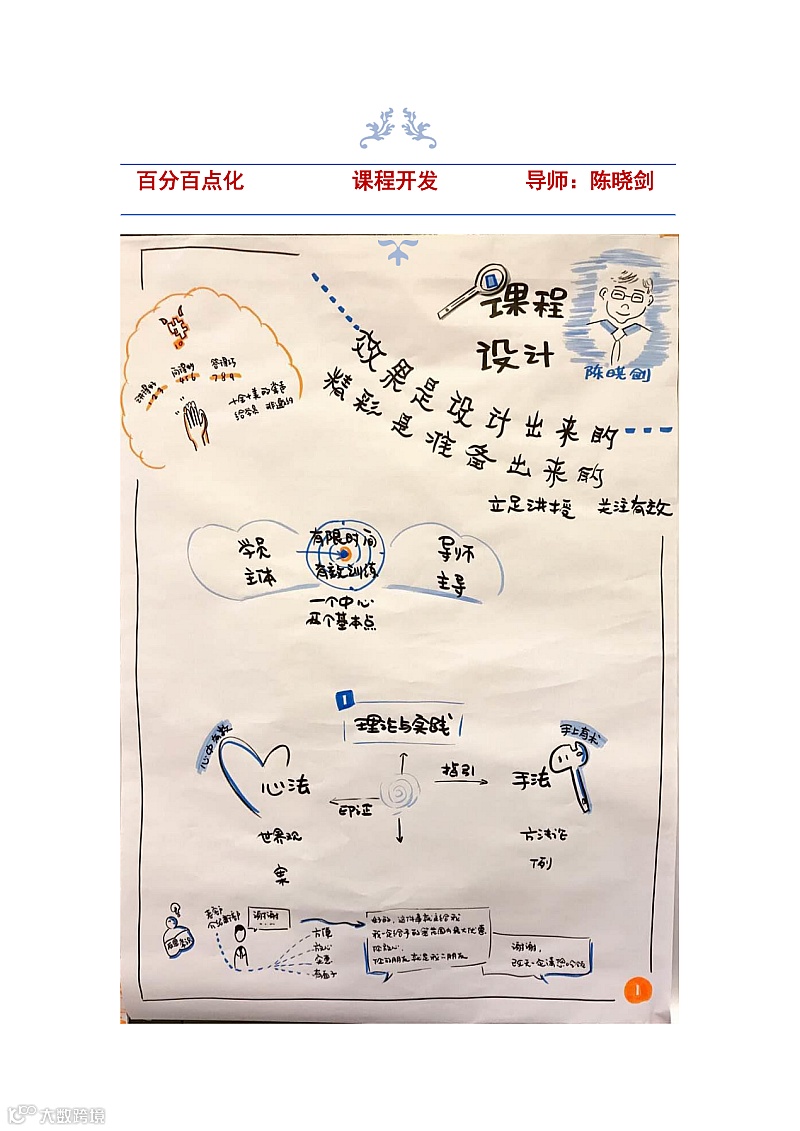 百分百点化 课程开发 导师：陈晓剑
课程
设计
陈晓剑
效果是设计出来的
精彩是准备出来的
立足讲授 关注有效
讲得好
1 2 3
问得好
4 5 6
答得巧
7 8 9
10
学员
主体
有限时间
有效训练
导师
主导
一个中心
两个基本点
1
理论与实践
心中有数
心法
世界观
案
印证
指引
手上有术
手法
方法论
例
谢谢
方便
放心
实惠
有面子
好的，这件事就交给我
你放心
你的朋友就是我的朋友
谢谢，
改天一定请您吃饭
1
大数跨境